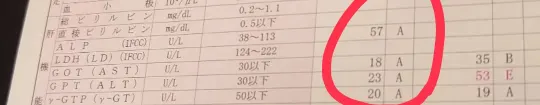 血 小 板 10⁴/μL
総ビリルビン mg/dL 0.2～1.1
肝 直接ビリルビン mg/dL 0.5以下
ALP (IFCC) U/L 38～113 57 A
LDH(LD)(IFCC) U/L 124～222
機 GOT(AST) U/L 30以下 18 A 35 B
GPT(ALT) U/L 30以下 23 A 53 E
能 γ-GTP(γ-GT) U/L 50以下 20 A 19 A